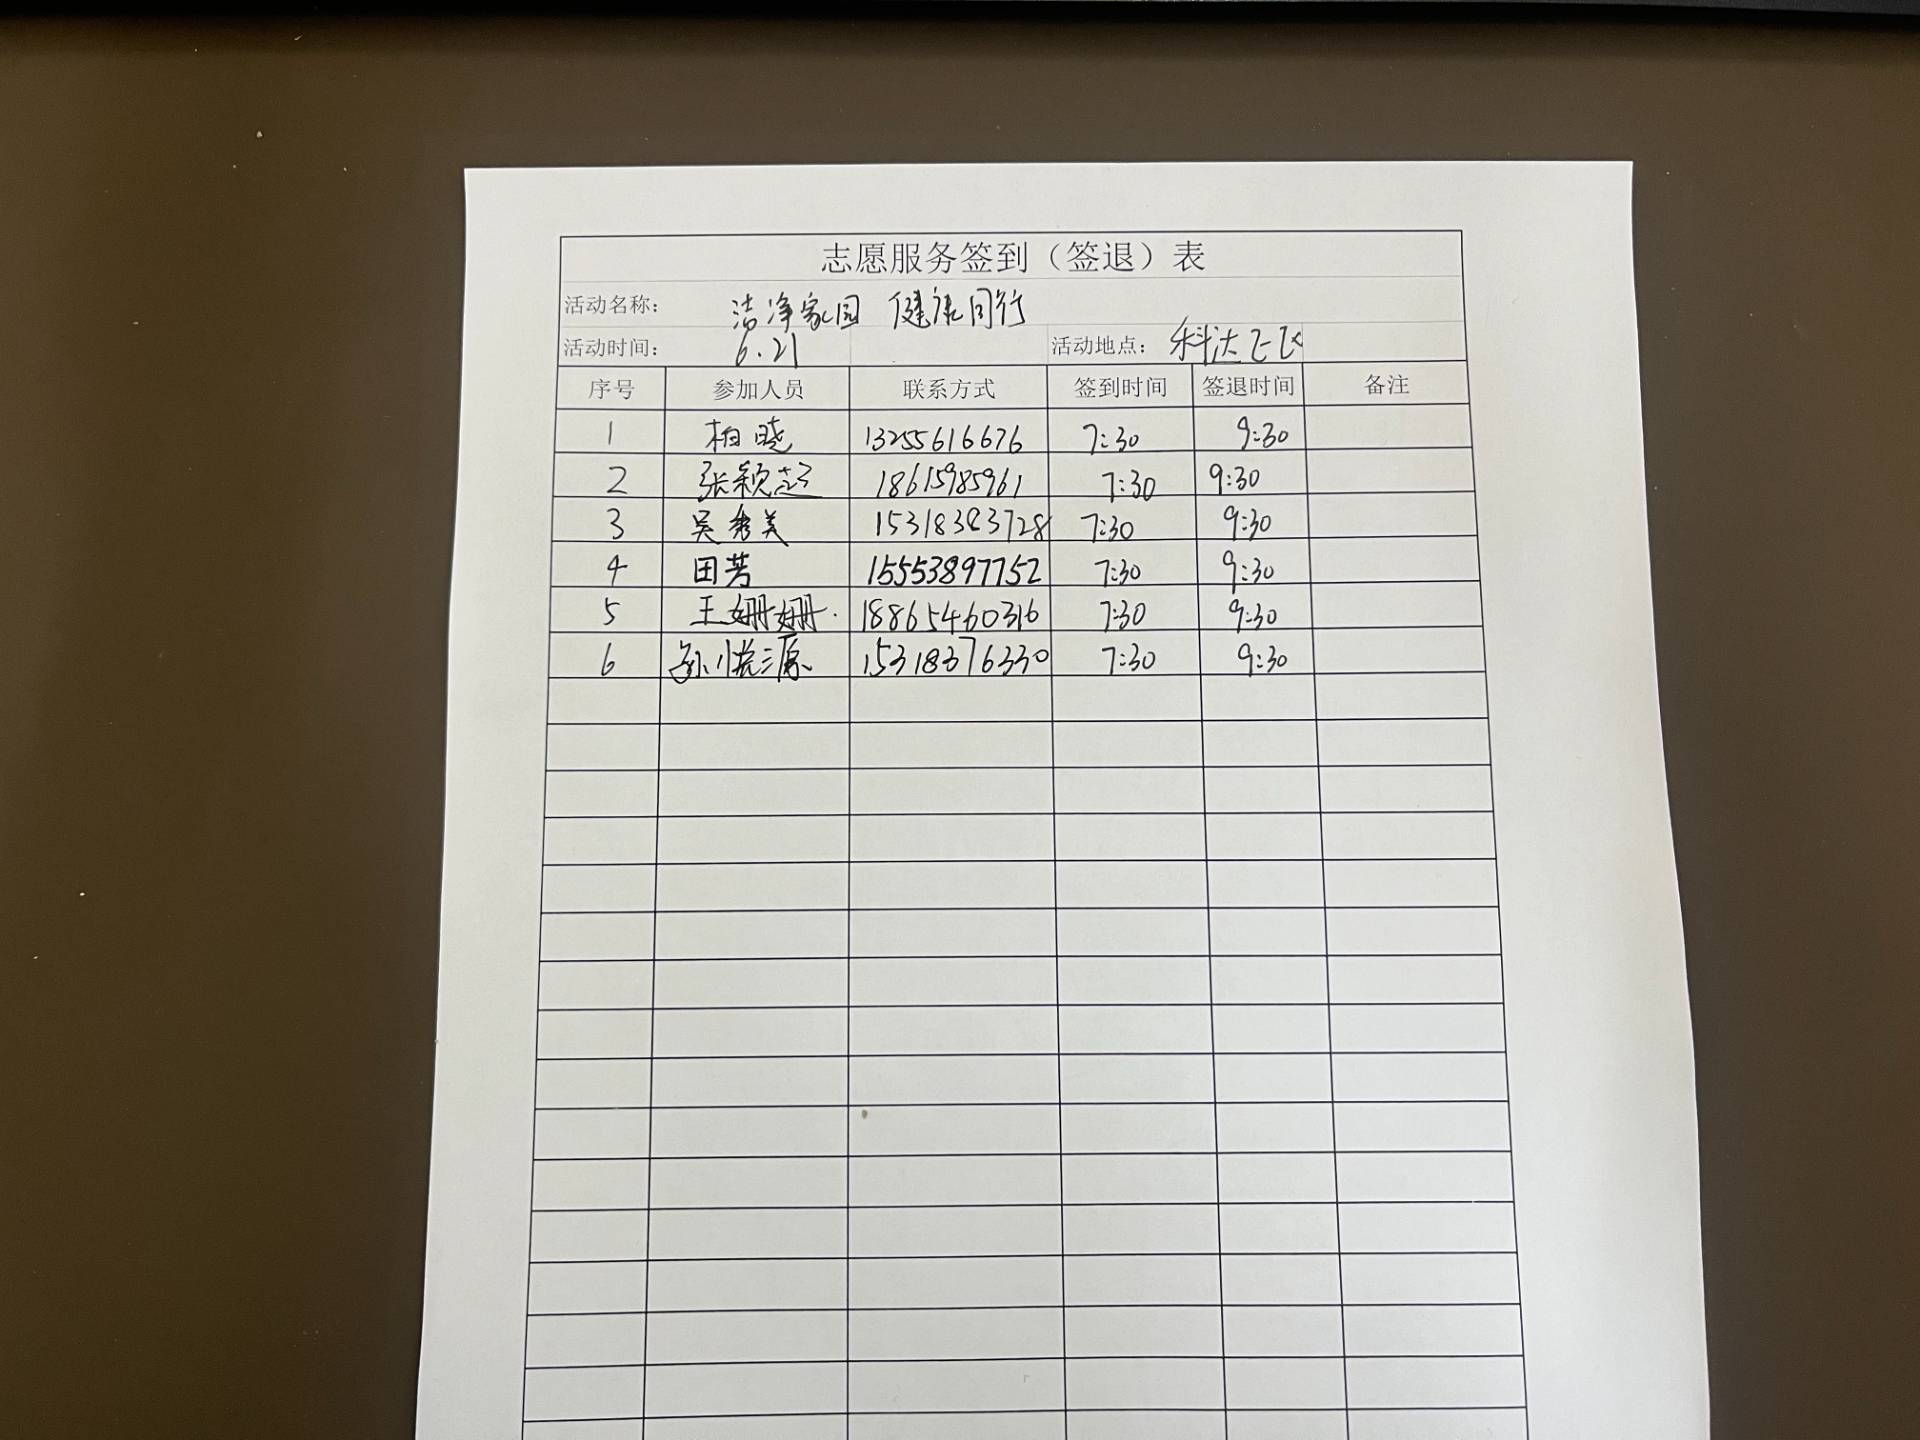 志愿服务签到（签退）表
活动名称： 洁净家园 健康同行
活动时间： 6.21 活动地点： 科达E区
序号 参加人员 联系方式 签到时间 签退时间 备注
1 柏晓 13255616676 7:30 9:30
2 张颖 18615985961 7:30 9:30
3 吴秀美 15318383728 7:30 9:30
4 田芳 15553897752 7:30 9:30
5 王姗姗 18865460316 7:30 9:30
6 15318376330 7:30 9:30